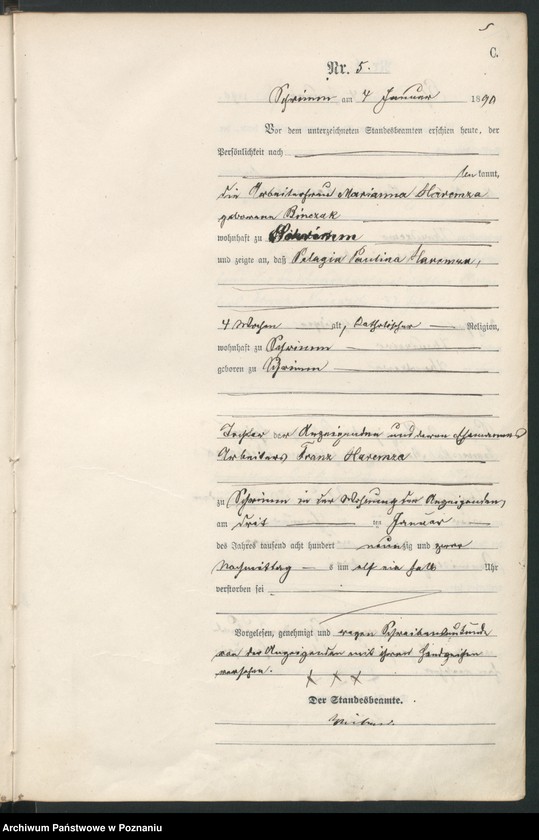 5
C.
Nr. 5.
Schrimm am 4 Januar 1890
Vor dem unterzeichneten Standesbeamten erschien heute, der
Persönlichkeit nach
bekannt,
die Arbeiterfrau Marianna Haremza
geborene Binczak
wohnhaft zu Schrimm
und zeigte an, daß Pelagia Paulina Haremza,
4 Wochen alt, katholischer Religion,
wohnhaft zu Schrimm
geboren zu Schrimm
Tochter der Anzeigenden und deren Ehemannes
Arbeiters Franz Haremza
zu Schrimm in der Wohnung der Anzeigenden,
am drit ten Januar
des Jahres tausend acht hundert neunzig und
Nachmittag s um elf ein halb Uhr
verstorben sei
Vorgelesen, genehmigt und wegen Schreibensunkunde
von der Anzeigenden mit ihrem Handzeichen
versehen. XXX
Der Standesbeamte.
Archiwum Państwowe w Poznaniu